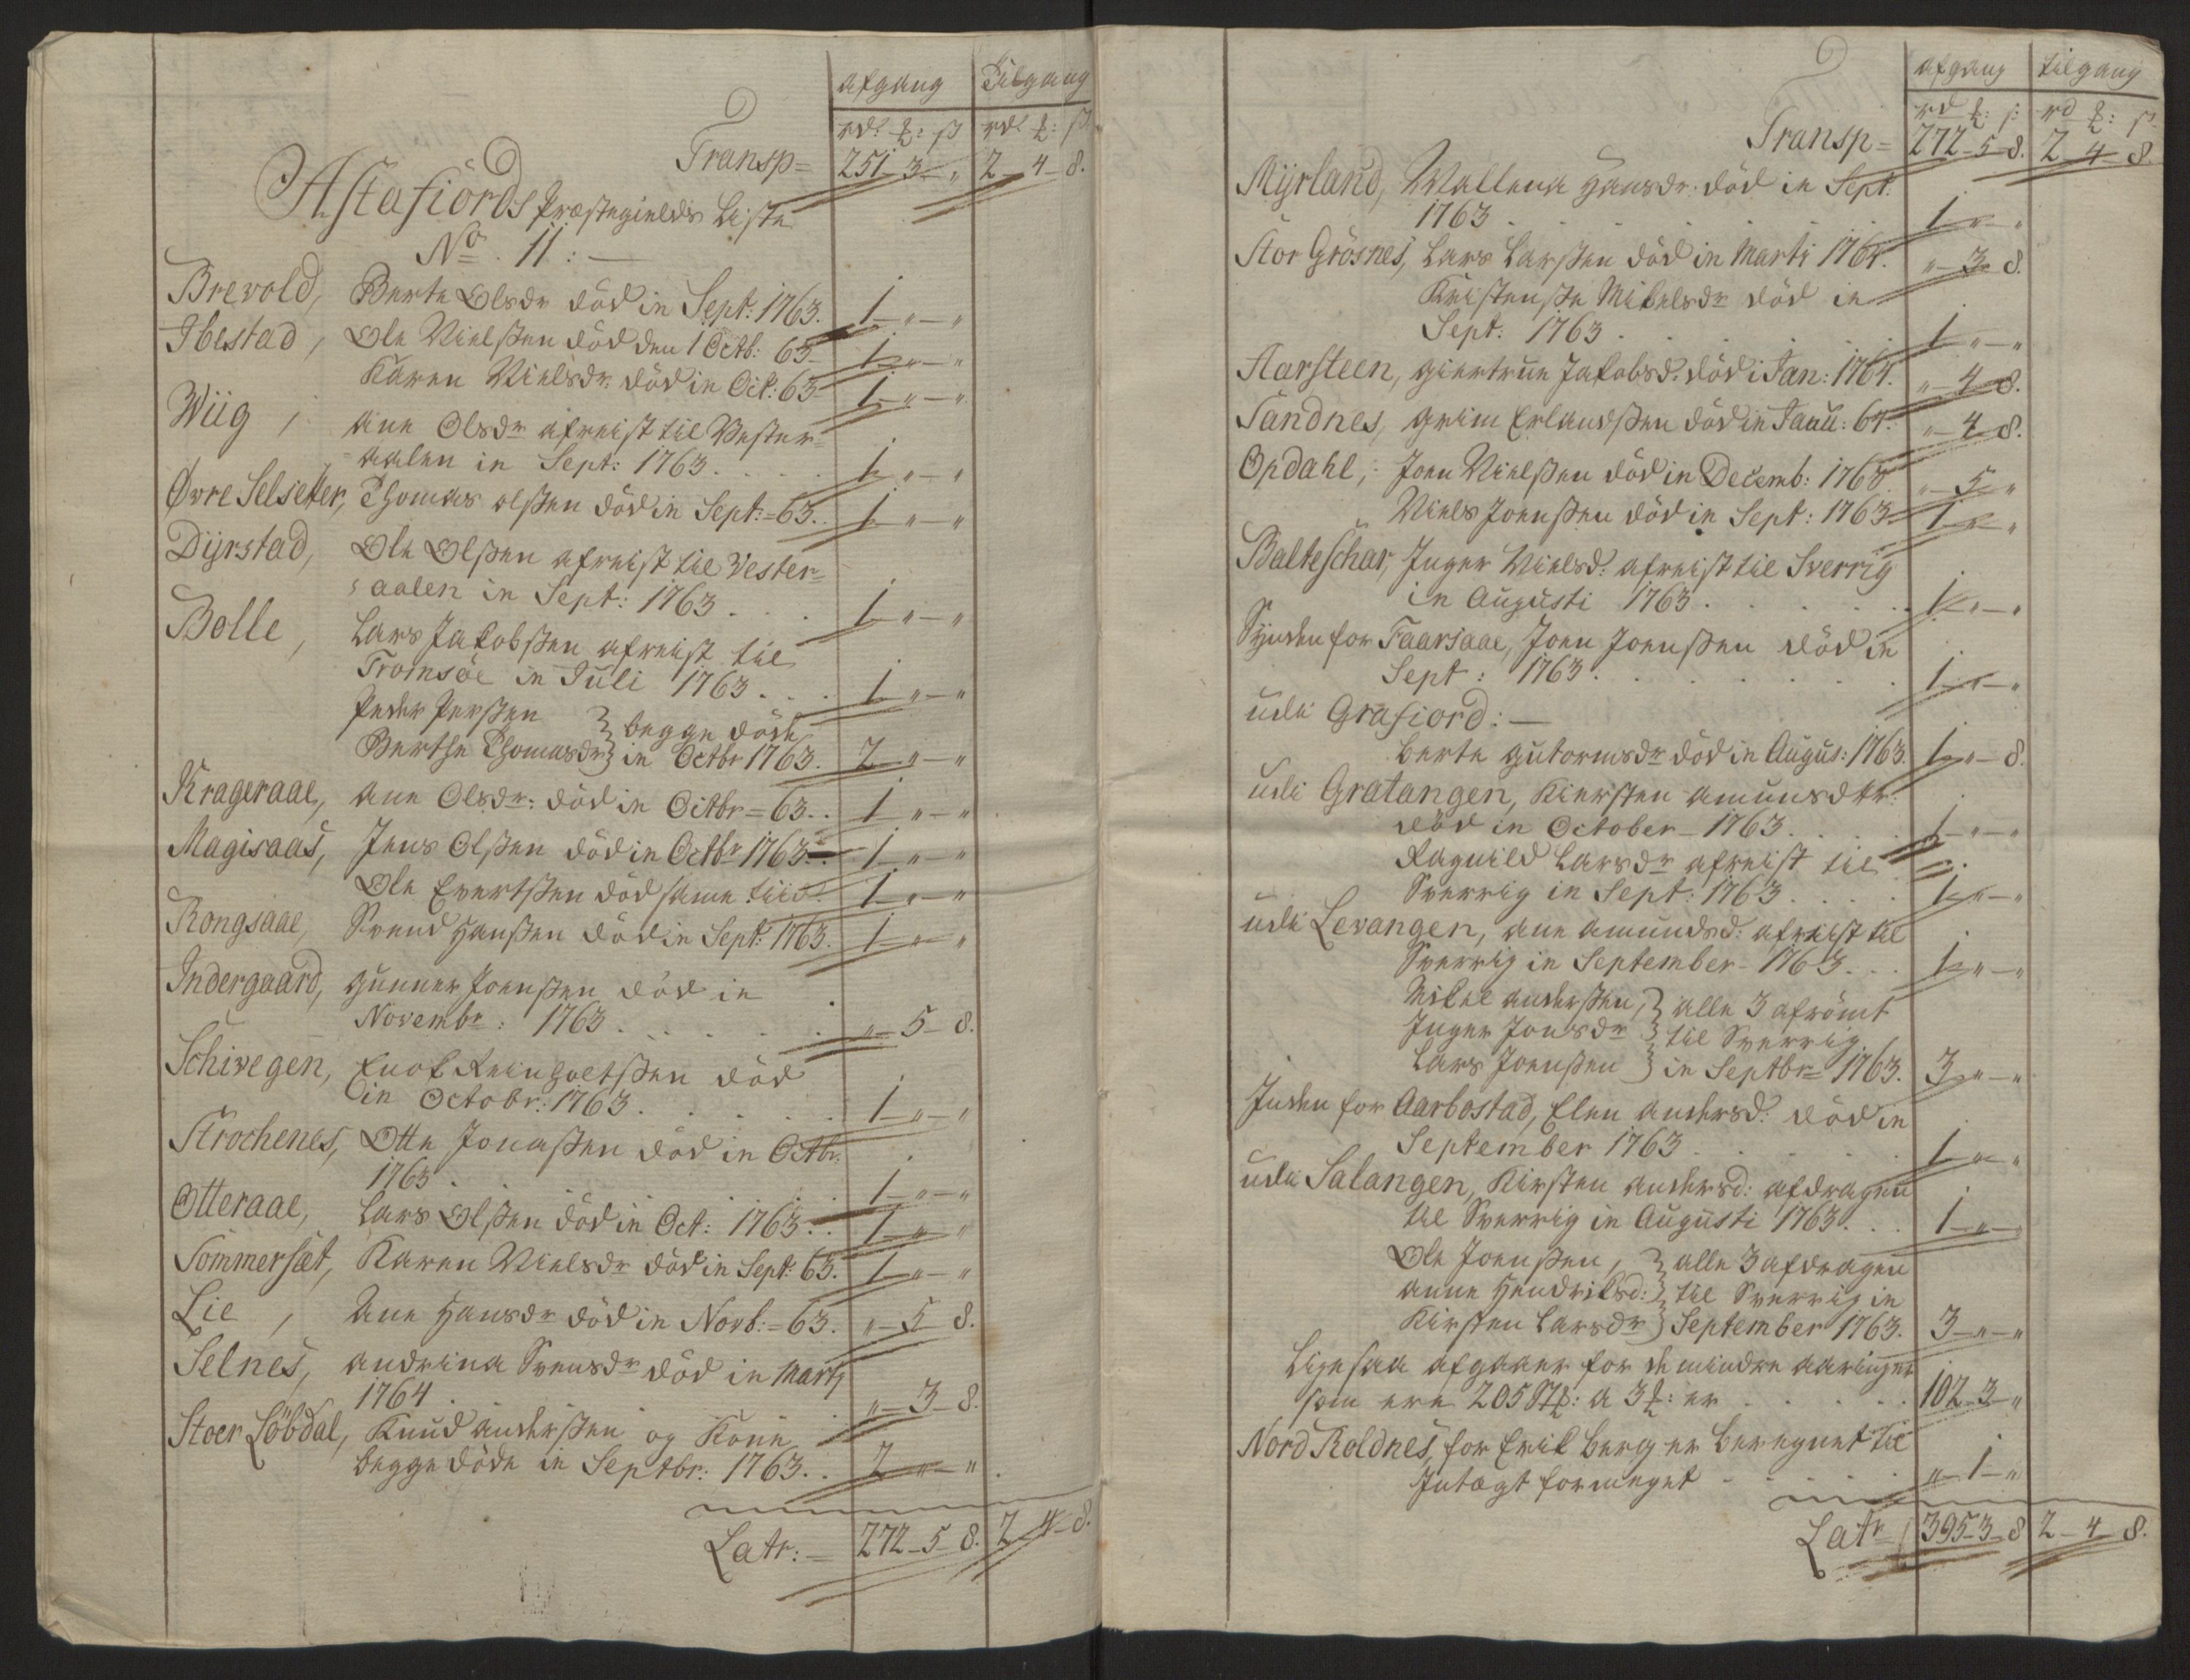 afgang Tilgang
rd. ℔: ß rd. ℔: ß
Transp= 251-3-„ 2-4-8.
Astafiords Præstegields Liste
No. 11:—
Brevold, Berte Olsdr død in Sept: 1763. 1-„-„
Ibestad, Ole Nielssen død den 1 Octb: 63- 1-„-„
Karen Nielsdr. død in Oct: 63- 1-„-„
Wiig, ane Olsdr afreist til Vester=
=aalen in Sept: 1763. . . . 1-„-„
Øvre Selseter, Thomas olssen død in Sept:=63. . 1-„-„
Dyrstad, Ole Olssen afreist til Vester=
aalen in Sept: 1763. . . 1-„-„
Bolle, Lars Jakobssen afreist til
Tromsøe in Juli 1763. . . 1-„-„
Peder Perssen } begge døde
Berthe Thomasdr } in Octbr 1763. 2-„-„
Krageraae, ane Olsdr: død in Octbr=63. . 1-„-„
Magisaas, Jens Olssen død in Octbr 1763 . 1-„-„
Ole Evertssen død same tiid. 1-„-„
Rongsaae, Svend Hanssen død in Sept: 1763. 1-„-„
Indergaard, gunner Joenssen død in
Novembr: 1763. . . . . „-5-8.
Schivegen, Enok Reinholtssen død
in Octobr: 1763. . . . 1-„-„
Strochenes, Otte Jonassen død in Octbr.
1763. . . . . 1-„-„
Otteraae, Lars Olssen død in Oct: 1763 . . 1-„-„
Sommersæt, Karen Nielsdr død in Sept: 63. 1-„-„
Lie, Ane Hansdr død in Novb:=63. „-5-8.
Selnes, andrina Svensdr død in Marty
1764 . . . „-3-8.
Stoer Løbdal, Knud anderssen og Kone
begge døde in Septbr: 1763. . 2-„-„
Latr:= 272-5-8. 2-4-8.
afgang tilgang
rd ℔: ß: rd ℔: ß
Transp= 272-5-8. 2-4-8.
Myrland, Wallena Hansdr. død in Sept:
1763 . . . . . . 1-„-„
Stor Grøsnes, Lars Larssen død in Marti 1764. „-3-8.
Kristense Mikelsdr død in
Sept: 1763 . . . . . 1-„-„
Aarsteen, giertrue Jakobsd. død i Jan: 1764. „-4-8.
Sandnes, grim Erlandssen død in Janu: 64. „-4-8.
Opdahl, Joen Nielssen død in Decemb: 1763 „-5-„
Niels Joenssen død in Sept: 1763 1-„-„
Balteschar, Inger Nielsd: afreist til Sverrig
in Augusti 1763. . . . . 1-„-„
Synden for Faarsaae, Joen Joenssen død in
Sept: 1763. . . . . . 1-„-„
udi Grafiord:—
Berte gutormsdr død in Augus: 1763. 1-„-8.
udi Gratangen, Kiersten amunsdtr:
død in October-1763. . . . 1-„-„
Ragnild Larsdr afreist til
Sverrig in Sept: 1763. . . . 1-„-„
udi Levangen, ane amundsd: afreist til
Sverrig in September-1763. . . 1-„-„
Mikel anderssen, } alle 3 afrømt
Inger Jonsdr } til Sverrig
Lars Joenssen } in Septbr= 1763. 3-„-„
Inden for Aarbostad, Elen andersd. død in
September 1763 . . . . . 1-„-„
udi Salangen, Kirsten andersd: afdragen
til Sverrig in Augusti 1763. . . 1-„-„
Ole Joenssen, } alle 3 afdragen
anne Hendriksd: } til Sverrig in
Kirsten Larsdr } September 1763. 3-„-„
Ligesaa afgaaer for de mindre aaringer
som ere 205 St: a 3 ℔: er . . . . 102-3-„
Nord Roldnes, for Erik Berg er beregnet til
Intægt formeget . . . . . „-1-„
Latr= 395-3-8 2-4-8.